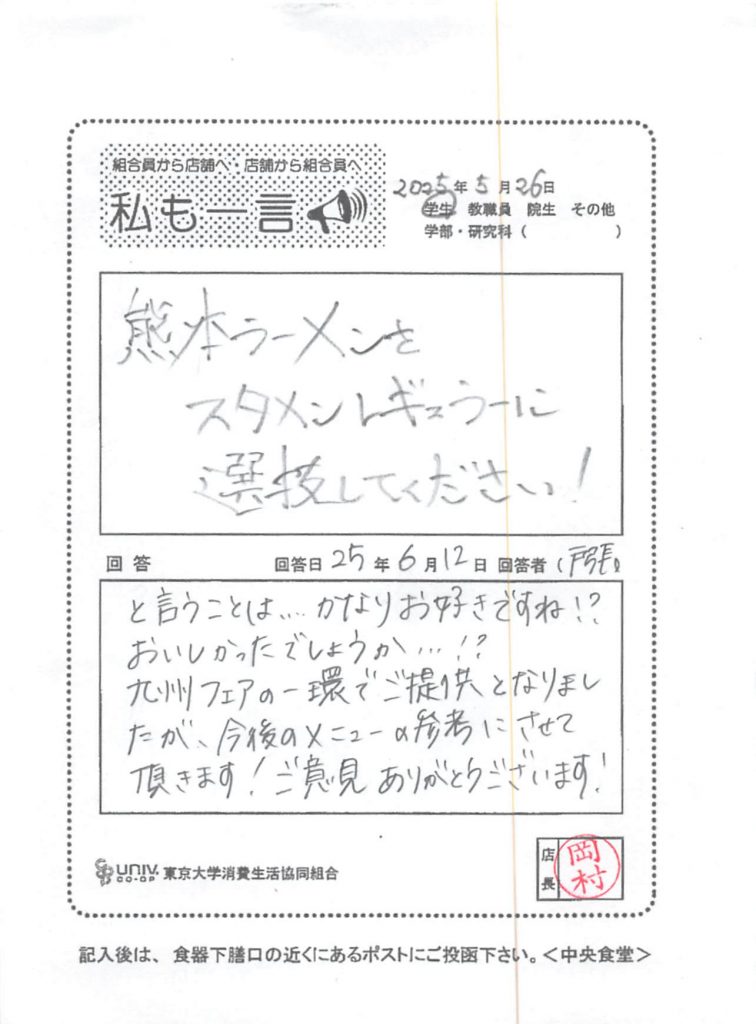 組合員から店舗へ・店舗から組合員へ
私も一言
2025年5月26日
学生 教職員 院生 その他
学部・研究科（ ）
熊本ラーメンを
スタメンレギュラーに
選抜してください！
回答 回答日 25年6月12日 回答者（戸張）
と言うことは…かなりお好きですね！？
おいしかったでしょうか…！？
九州フェアの一環でご提供となりまし
たが、今後のメニューの参考にさせて
頂きます！ご意見ありがとうございます！
UNIV. CO-OP 東京大学消費生活協同組合
店長 岡村
記入後は、食器下膳口の近くにあるポストにご投函下さい。＜中央食堂＞